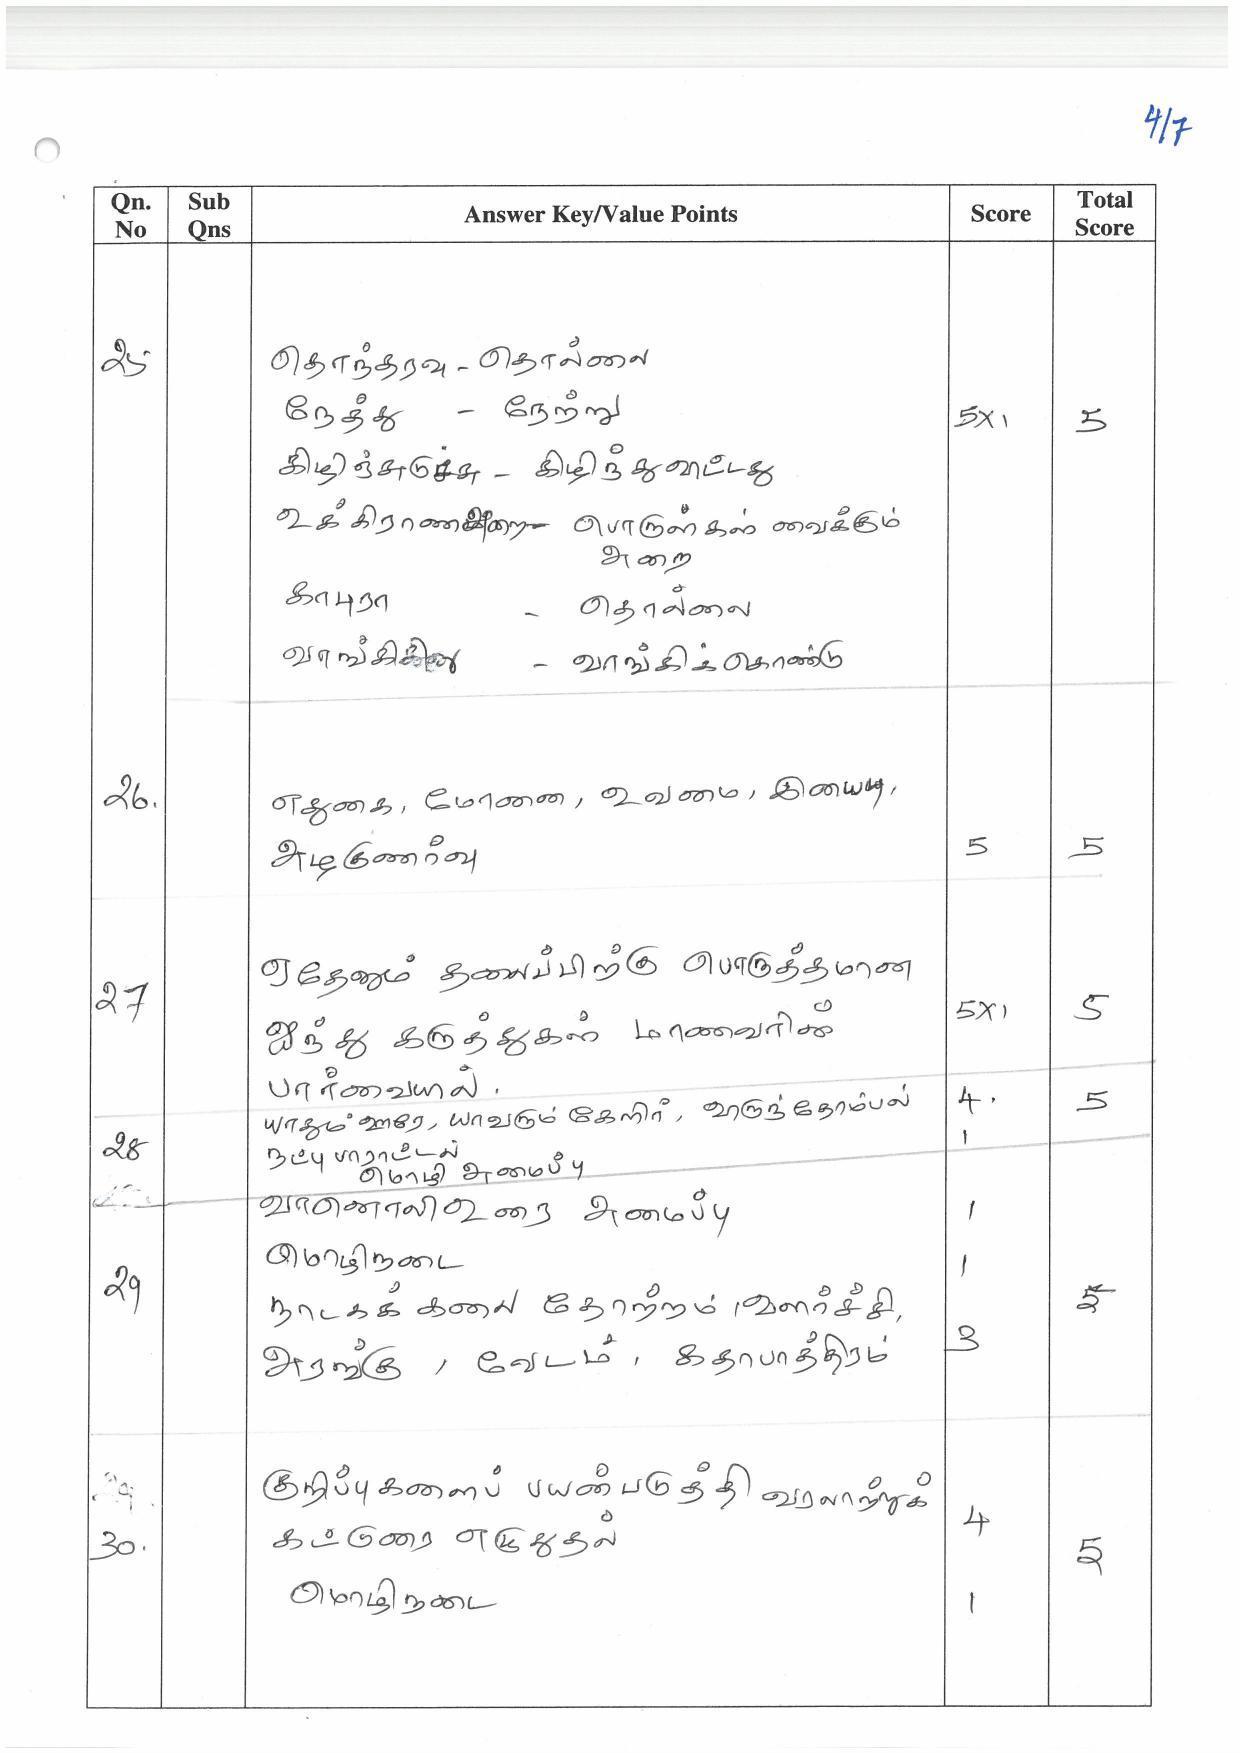 4/7
Qn. No Sub Qns Answer Key/Value Points Score Total Score
25 தொந்தரவு - தொல்லை
நேத்து - நேற்று 5x1 5
கிழிஞ்சுடுச்சு - கிழிந்துவிட்டது
உக்கிராணஅறை - பொருள்கள் வைக்கும்
அறை
காபுரா - தொல்லை
- வாங்கிக்கொண்டு
26. எதுகை, மோனை, உவமை, இயைபு,
அழகுணர்வு 5 5
ஏதேனும் தலைப்பிற்கு பொருத்தமான
27 ஐந்து கருத்துகள் மாணவரின் 5x1 5
பார்வையில்.
யாதும் ஊரே, யாவரும் கேளிர், விருந்தோம்பல் 4. 5
28 நட்பு பாராட்டல் 1
மொழி அமைப்பு
வானொலி உரை அமைப்பு 1
மொழிநடை 1
29 நாடகக் கலை தோற்றம், வளர்ச்சி, 5
அரங்கு, வேடம், கதாபாத்திரம் 3
குறிப்புகளைப் பயன்படுத்தி வரலாற்றுக்
30. கட்டுரை எழுதுதல் 4 5
மொழிநடை 1